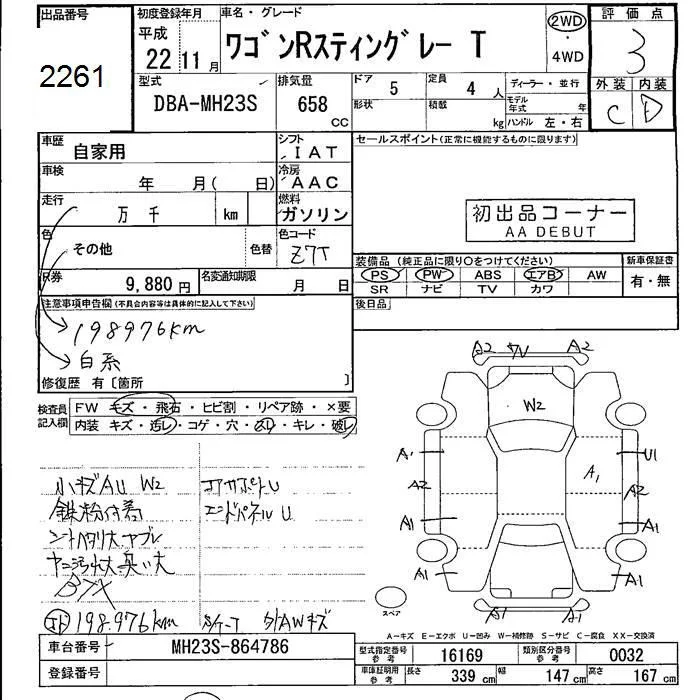 出品番号
2261
初度登録年月
平成
22年11月
車名・グレード
ワゴンRスティングレー T
2WD
・
4WD
評価点
3
外装 内装
C D
型式
DBA-MH23S
排気量
658
CC
ドア
5
形状
定員
4人
積載
kg
ディーラー・並行
モデル年式 年
ハンドル 左・右
車歴
自家用
シフト
IAT
車検
年 月( 日)
冷房
AAC
走行
万 千 km
燃料
ガソリン
色
その他
色替
色コード
Z7T
R券
9,880円
名変通知期限
月 日
セールスポイント(正常に機能するものに限ります)
初出品コーナー
AA DEBUT
装備品 (純正品に限り○をつけてください)
PS PW ABS エアB AW
SR ナビ TV カワ
新車保証書
有・無
後日品
注意事項申告欄(不具合内容等は具体的に記入して下さい)
198976km
白系
修復歴 有〔箇所 〕
検査員
記入欄
FW キズ・飛石・ヒビ割・リペア跡・×要
内装 キズ・汚レ・コゲ・穴・スレ・キレ・破レ
小キズAU W2
鉄粉付着
シートヘタリ大ヤブレ
ヤニ汚れ大臭い大
コアサポートU
エンドパネルU
198.976km
外AWキズ
A2 A2
W2
A1 U1
A1
A2 A2
A1 A1
A1 A1
A1 A1
スペア
A-キズ E-エクボ U-凹み W-補修跡 S-サビ C-腐食 XX-交換済
車台番号
MH23S-864786
登録番号
型式指定番号
参考
16169
類別区分番号
参考
0032
車体証明用
参考
長さ 339cm 幅 147cm 高さ 167cm